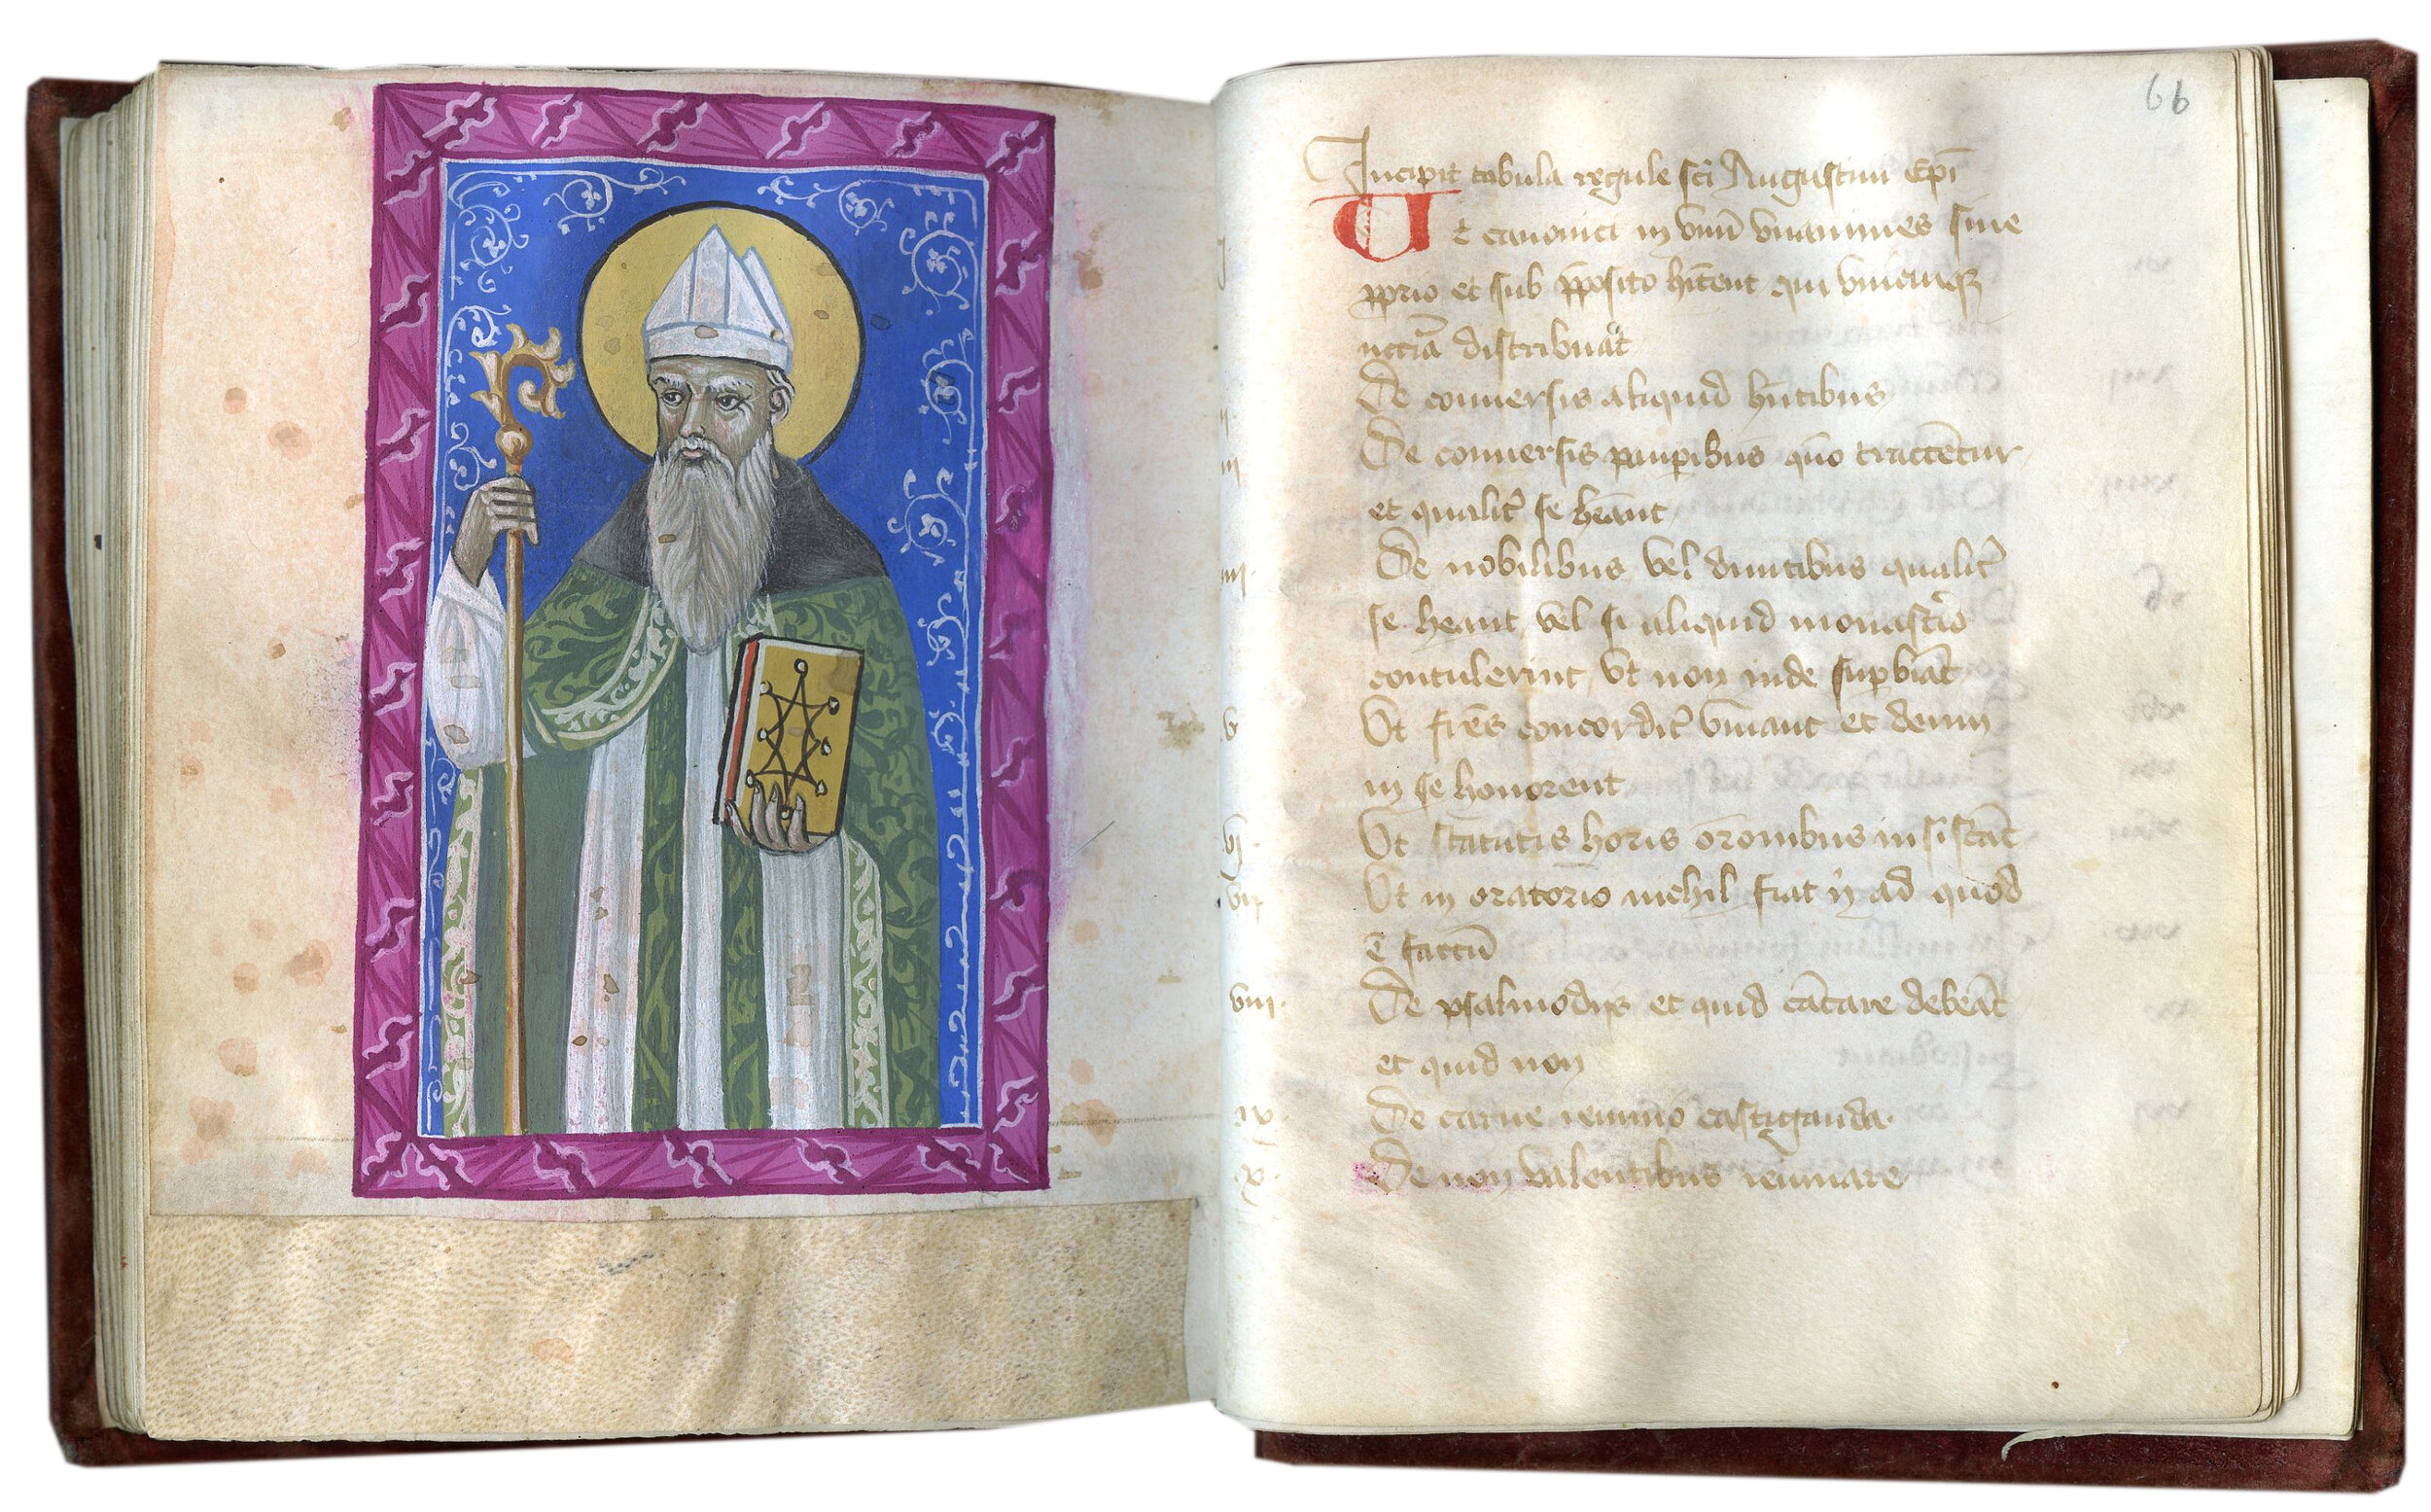 66
Incipit tabula regule sci Augustini Epi
Ut canonici in vnū vnanimes sine
pprio et sub pposito hitent qui vnicuiqꝫ
nccia distribuat
De conuersis aliquid hntibus
De conuersis paupibus quo tractētur
et qualit se heant
De nobilibus vel diuitibus qualit
se heant vel si aliquid monastio
contulerint vt non inde supbiāt
Vt fres concordit viuant et deum
in se honorent
Vt statutis horis oronibus insistāt
Vt in oratorio nichil fiat nˡ ad quod
ē factū
viii. De psalmodijs et quid cātare debeāt
et quid non
ix. De carne ieiunio castiganda.
x. De non valentibus ieiunare